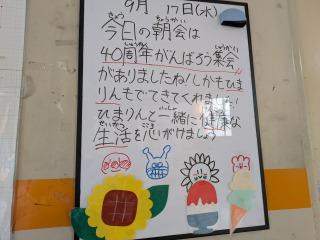 9月 17日(水)
今日の朝会は
40周年がんばろう集会
がありましたね!しかもひま
りんもでてきてくれました!
ひまりんと一緒に健康な
生活を心がけましょう